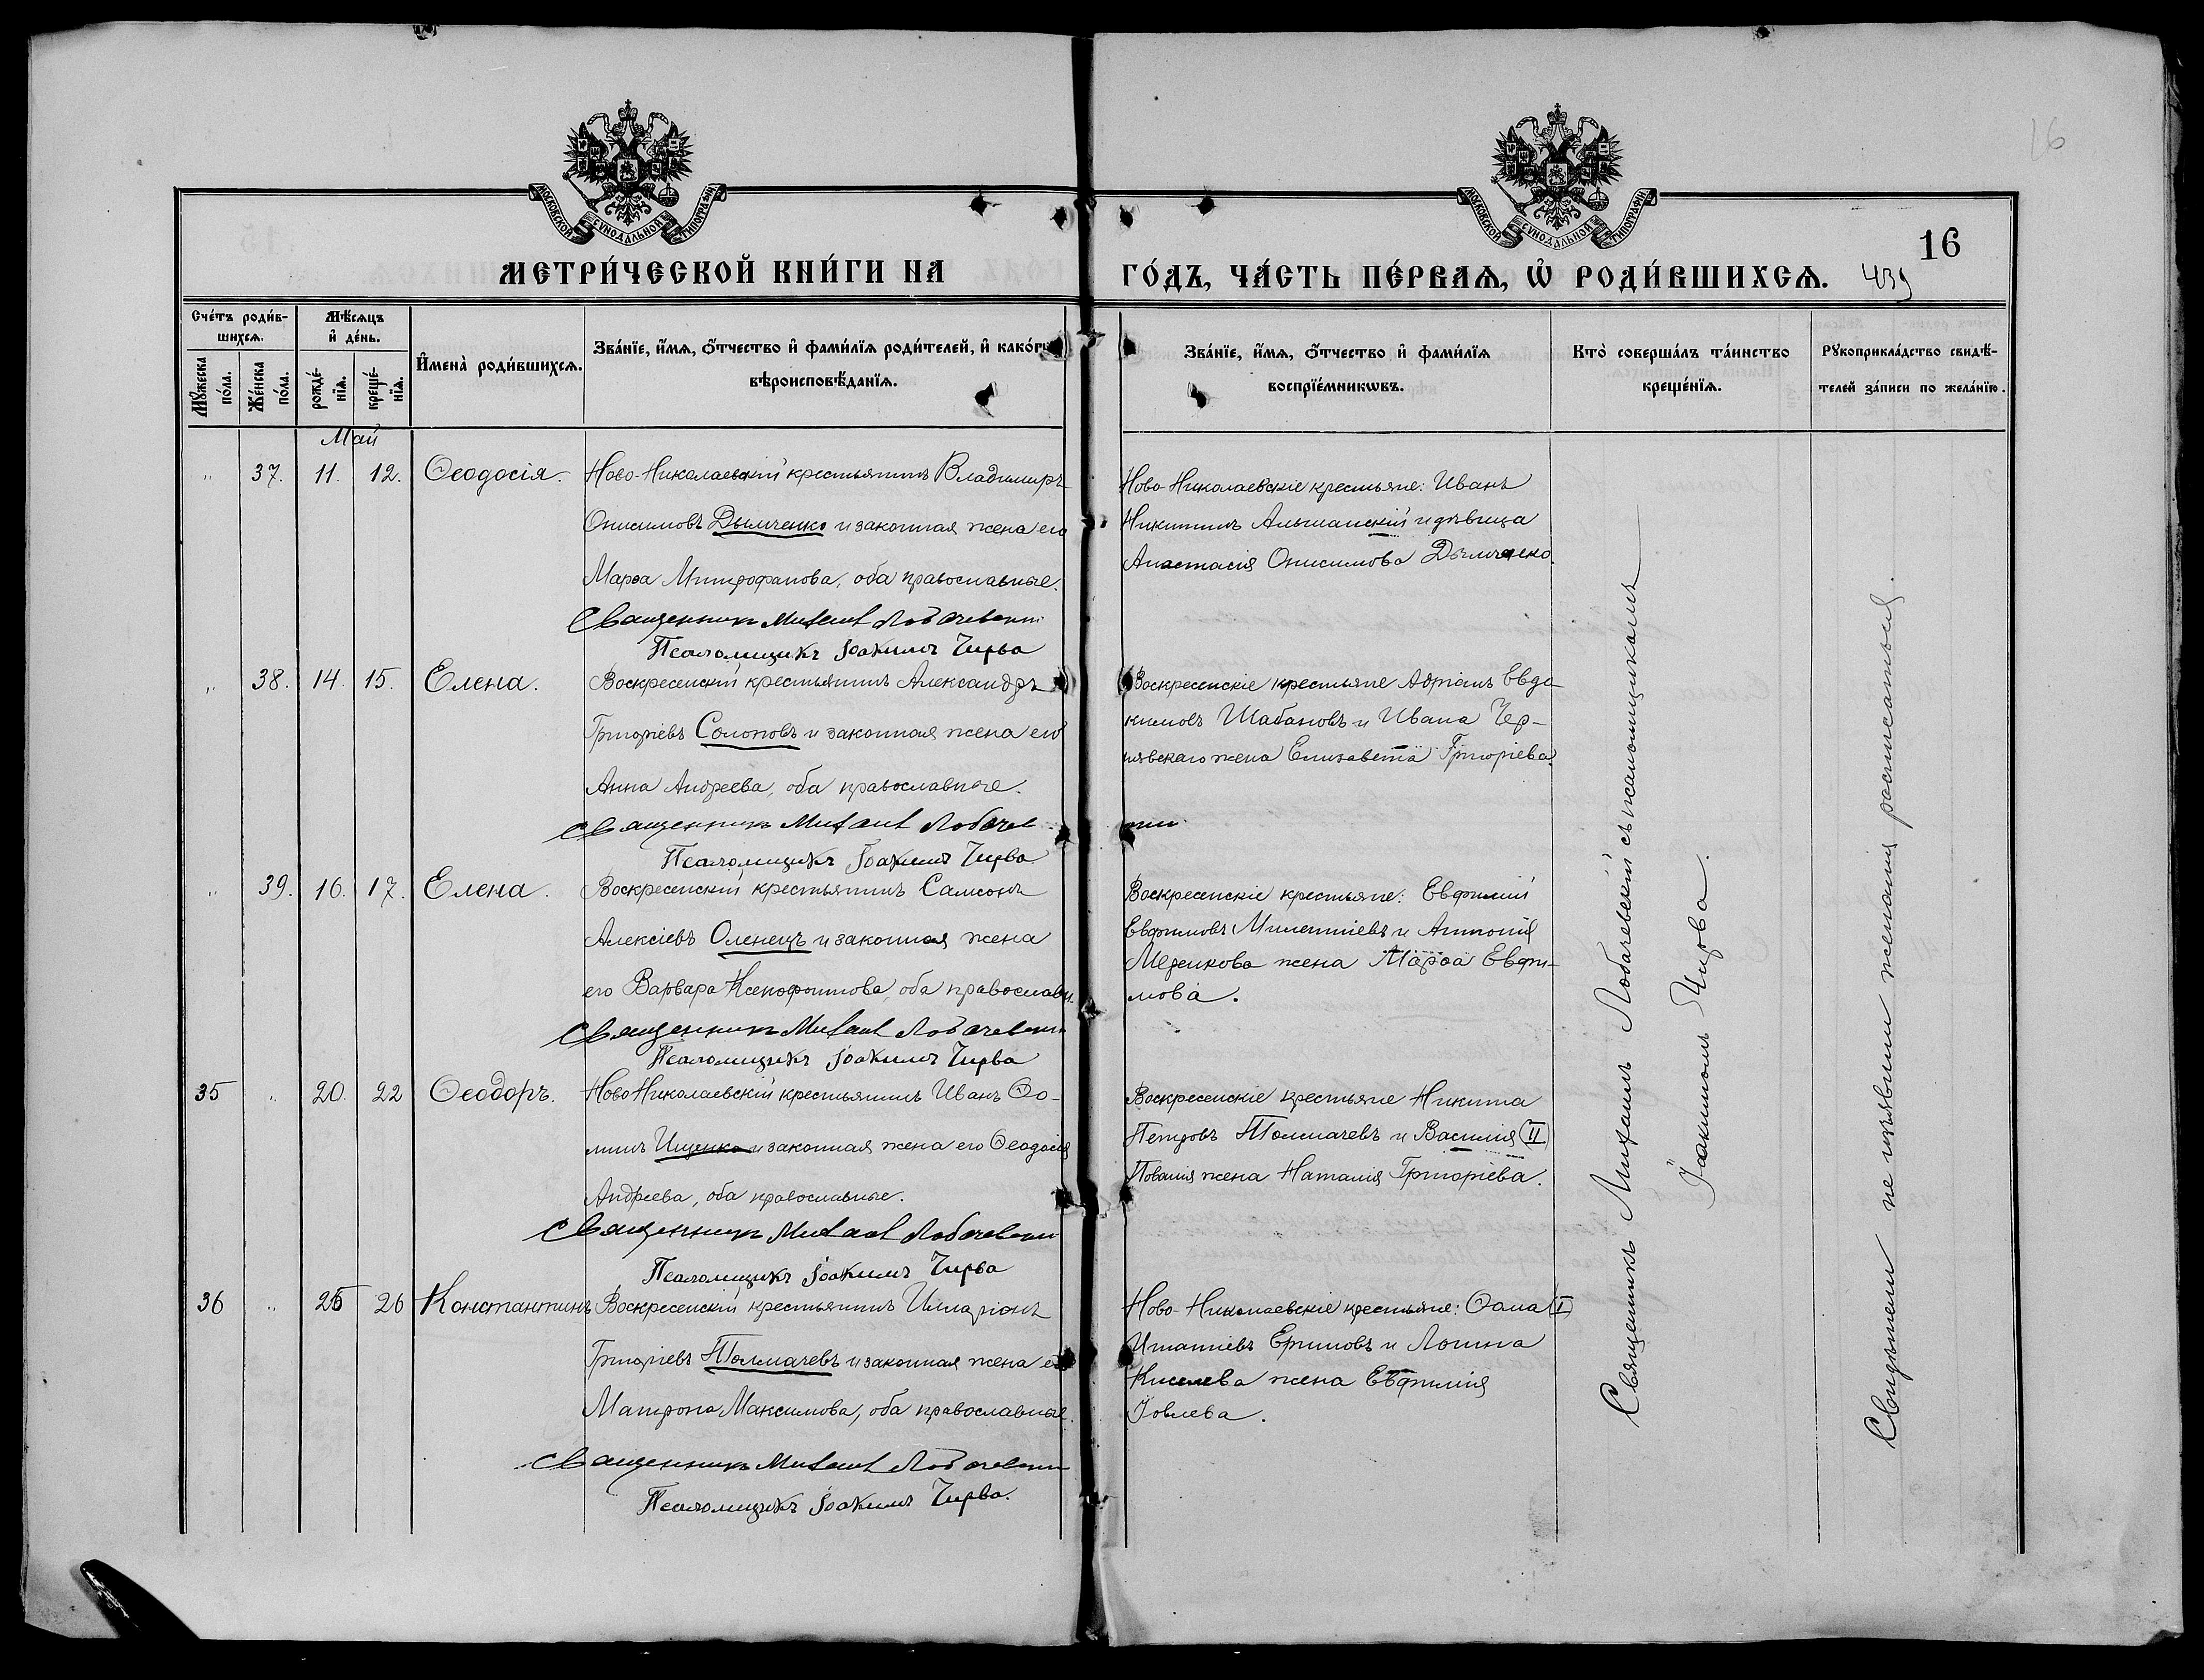 16
МОСКОВСКОЙ СѴНОДАЛЬНОЙ ТИПОГРАФІИ
МОСКОВСКОЙ СѴНОДАЛЬНОЙ ТИПОГРАФІИ
16
МЕТРИ́ЧЕСКОЙ КНИ́ГИ НА
ГО́ДЪ, ЧА́СТЬ ПЕ́РВАѦ, Ѡ҆ РОДИ́ВШИХСѦ.
439
Сче́тъ роди́в-
шихсѧ.
Мꙋ́жеска по́ла.
Же́нска по́ла.
Мѣ́сѧцъ
и҆ де́нь.
рожде́-
нїѧ.
креще́-
нїѧ.
И҆мена̀ роди́вшихсѧ.
Зва́нїе, и҆́мѧ, ѻ҆́тчество и҆ фами́лїѧ роди́телей, и҆ како́гѡ
вѣроисповѣ́данїѧ.
Зва́нїе, и҆́мѧ, ѻ҆́тчество и҆ фами́лїѧ
воспрїе́мникѡвъ.
Кто̀ соверша́лъ та́инство
креще́нїѧ.
Рꙋкоприкла́дство свидѣ́-
телей за́писи по жела́нїю.
Май
" 37. 11. 12. Ѳеодосія.
Ново-Николаевскій крестьянинъ Владимиръ
Онисимовъ Дымченко и законная жена его
Марѳа Митрофанова, оба православные.
Священникъ Михаилъ Лобачевскій
Псаломщикъ Іоакимъ Чирва
Ново-Николаевскіе крестьяне: Иванъ
Никитинъ Альшанскій и дѣвица
Анастасія Онисимова Дымченко.
" 38. 14. 15. Елена.
Воскресенскій крестьянинъ Александръ
Григоріевъ Солоповъ и законная жена его
Анна Андреева, оба православные.
Священникъ Михаилъ Лобачевскій
Псаломщикъ Іоакимъ Чирва
Воскресенскіе крестьяне Адріанъ Евдо-
кимовъ Шабановъ и Ивана Чер-
нявскаго жена Елизавета Григоріева.
" 39. 16. 17. Елена.
Воскресенскій крестьянинъ Самсонъ
Алексіевъ Оленецъ и законная жена
его Варвара Ксенофонтова, оба православн.
Священникъ Михаилъ Лобачевскій
Псаломщикъ Іоакимъ Чирва
Воскресенскіе крестьяне: Евфимій
Евфимовъ Милентіевъ и Антонія
Меренкова жена Марѳа Евфи-
мова.
35 " 20. 22 Ѳеодоръ.
Ново Николаевскій крестьянинъ Иванъ Ѳо-
минъ Ищенко и законная жена его Ѳеодосія
Андреева, оба православные.
Священникъ Михаилъ Лобачевскій
Псаломщикъ Іоакимъ Чирва
Воскресенскіе крестьяне Никита
Петровъ Толмачевъ и Василія (II)
жена Наталія Григоріева.
36 " 25 26 Константинъ
Воскресенскій крестьянинъ Илларіонъ
Григоріевъ Толмачевъ и законная жена его
Матрона Максимова, оба православные.
Священникъ Михаилъ Лобачевскій
Псаломщикъ Іоакимъ Чирва.
Ново-Николаевскіе крестьяне: Ѳома (I)
Игнатіевъ Ериновъ и Логина
Киселева жена Евфимія
Іовлева.
Священникъ Михаилъ Лобачевскій съ псаломщикомъ
Іоакимомъ Чирва.
Свидѣтели не изъявили желанія расписаться.